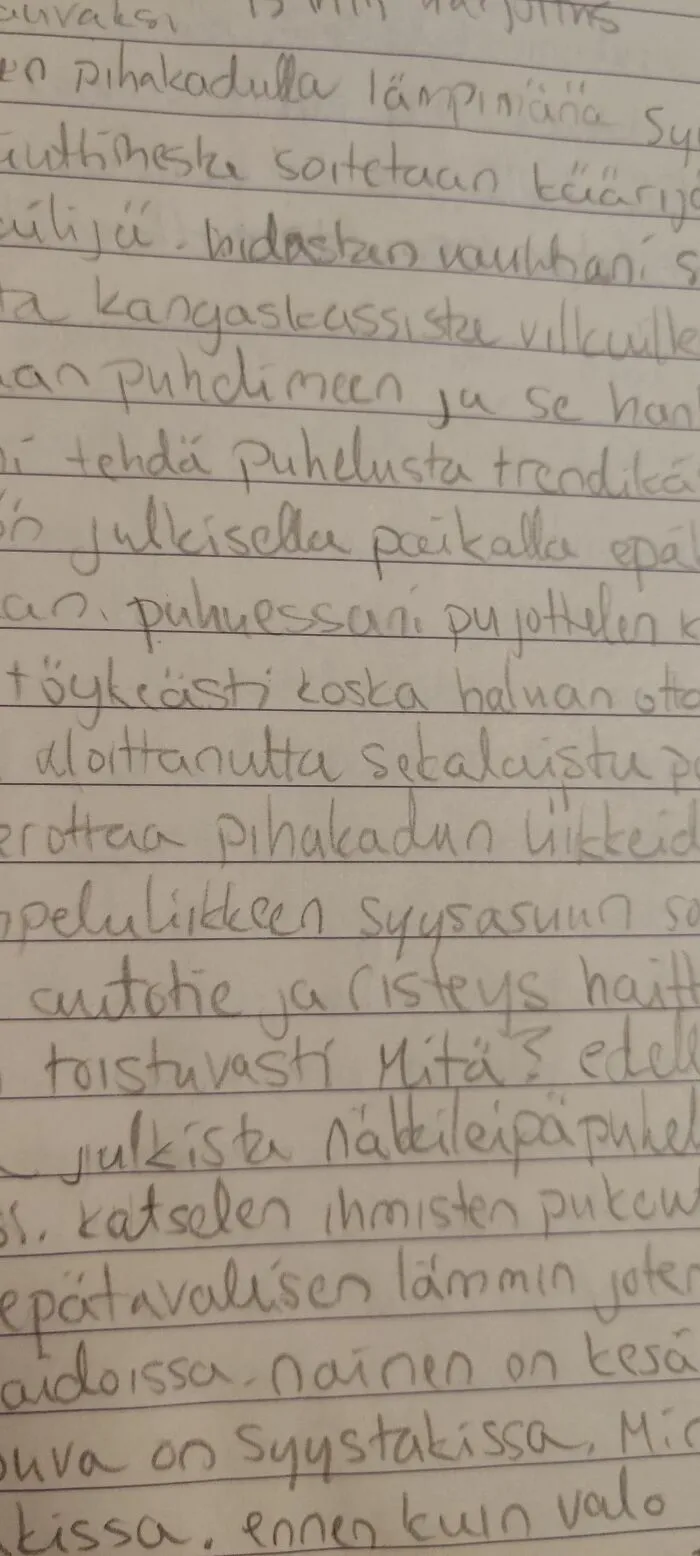 en pihakadulla lämpimänä sy
soitetaan käärijä
vauhtiani s
ta kangaskassista vilkuille
an puhelimeen ja se han
i tehdä puhelusta trendikä
n julkisella paikalla epä
an. puhuessani pujottelen k
töykeästi koska haluan otta
aloittanutta sekalaista p
erottaa pihakadun liikkeid
peluliikkeen syysasuun so
autotie ja risteys haitt
toistuvasti Mitä? edell
julkista näkkileipäpuhel
s. katselen ihmisten pukeu
epätavalisen lämmin joten
aidoissa. nainen on kesä
ouva on syystakissa. Mi
kissa. ennen kuin valo